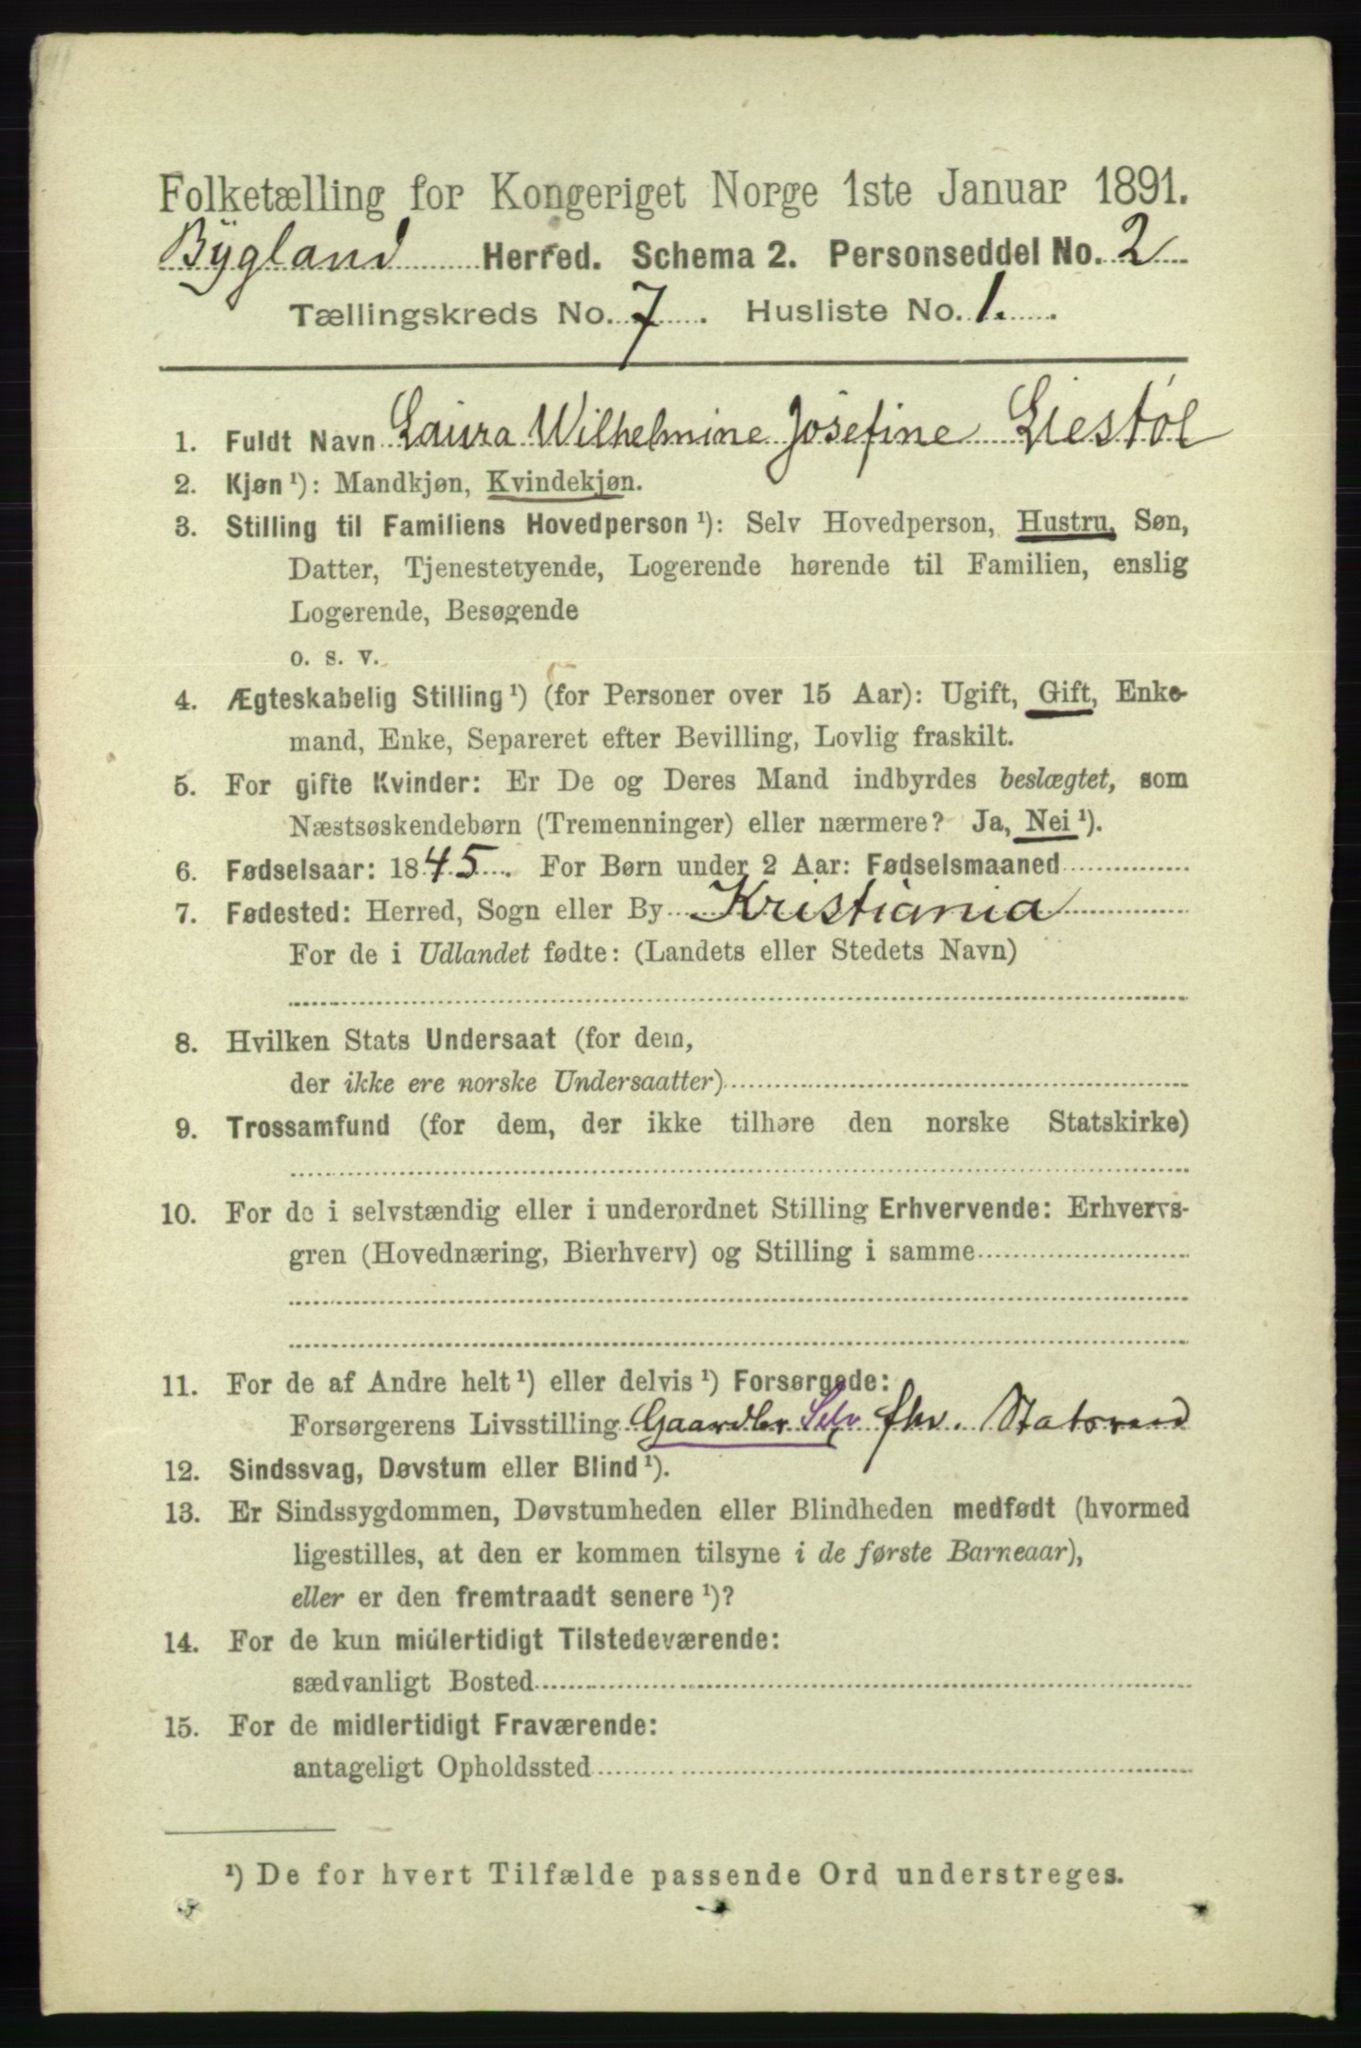 Folketælling for Kongeriget Norge 1ste Januar 1891.
Bygland Herred. Schema 2. Personseddel No. 2
Tællingskreds No. 7. Husliste No. 1.
1. Fuldt Navn Laura Wilhelmine Josefine Liestøl
2. Kjøn¹): Mandkjøn, Kvindekjøn.
3. Stilling til Familiens Hovedperson¹): Selv Hovedperson, Hustru, Søn,
Datter, Tjenestetyende, Logerende hørende til Familien, enslig
Logerende, Besøgende
o. s. v.
4. Ægteskabelig Stilling¹) (for Personer over 15 Aar): Ugift, Gift, Enke-
mand, Enke, Separeret efter Bevilling, Lovlig fraskilt.
5. For gifte Kvinder: Er De og Deres Mand indbyrdes beslægtet, som
Næstsøskendebørn (Tremenninger) eller nærmere? Ja, Nei¹).
6. Fødselsaar: 1845. For Børn under 2 Aar: Fødselsmaaned
7. Fødested: Herred, Sogn eller By Kristiania
For de i Udlandet fødte: (Landets eller Stedets Navn)
8. Hvilken Stats Undersaat (for dem,
der ikke ere norske Undersaatter)
9. Trossamfund (for dem, der ikke tilhøre den norske Statskirke)
10. For de i selvstændig eller i underordnet Stilling Erhvervende: Erhvervs-
gren (Hovednæring, Bierhverv) og Stilling i samme
11. For de af Andre helt¹) eller delvis¹) Forsørgede:
Forsørgerens Livsstilling Gaardbr Selv fhv. Statsraad
12. Sindssvag, Døvstum eller Blind¹).
13. Er Sindssygdommen, Døvstumheden eller Blindheden medfødt (hvormed
ligestilles, at den er kommen tilsyne i de første Barneaar),
eller er den fremtraadt senere¹)?
14. For de kun midlertidigt Tilstedeværende:
sædvanligt Bosted
15. For de midlertidigt Fraværende:
antageligt Opholdssted
¹) De for hvert Tilfælde passende Ord understreges.